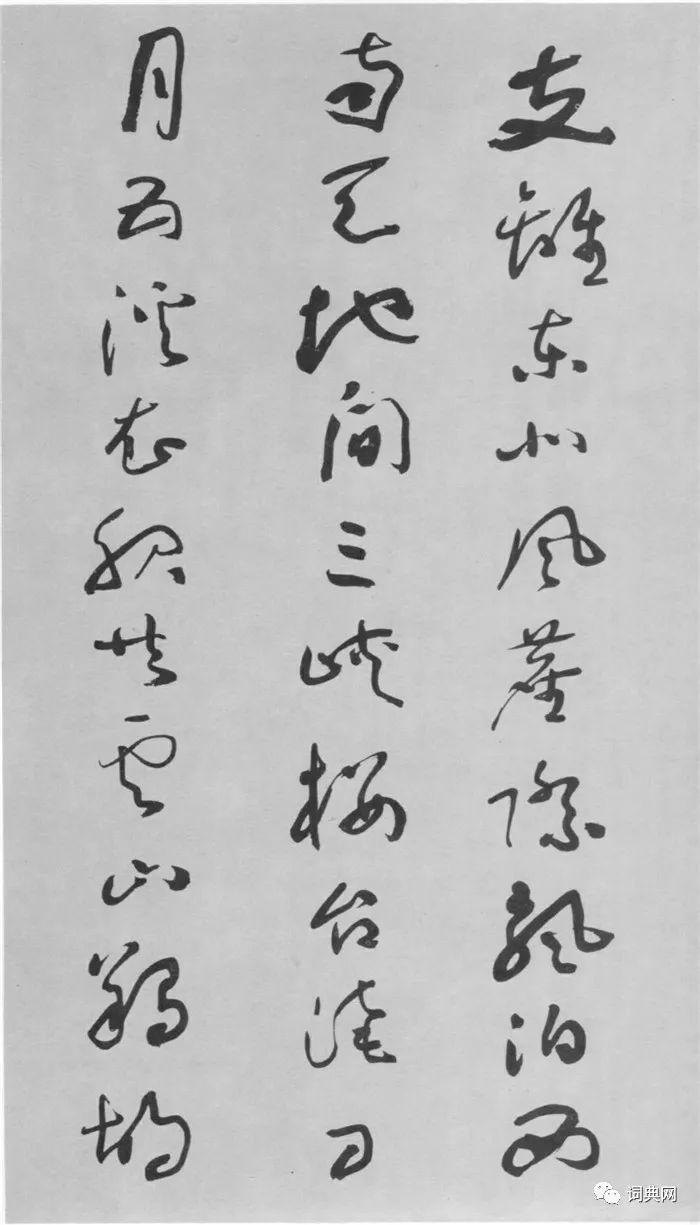 支離東北風塵際飄泊西
南天地間三峽樓台淹日
月五溪衣服共雲山羯胡
词典网